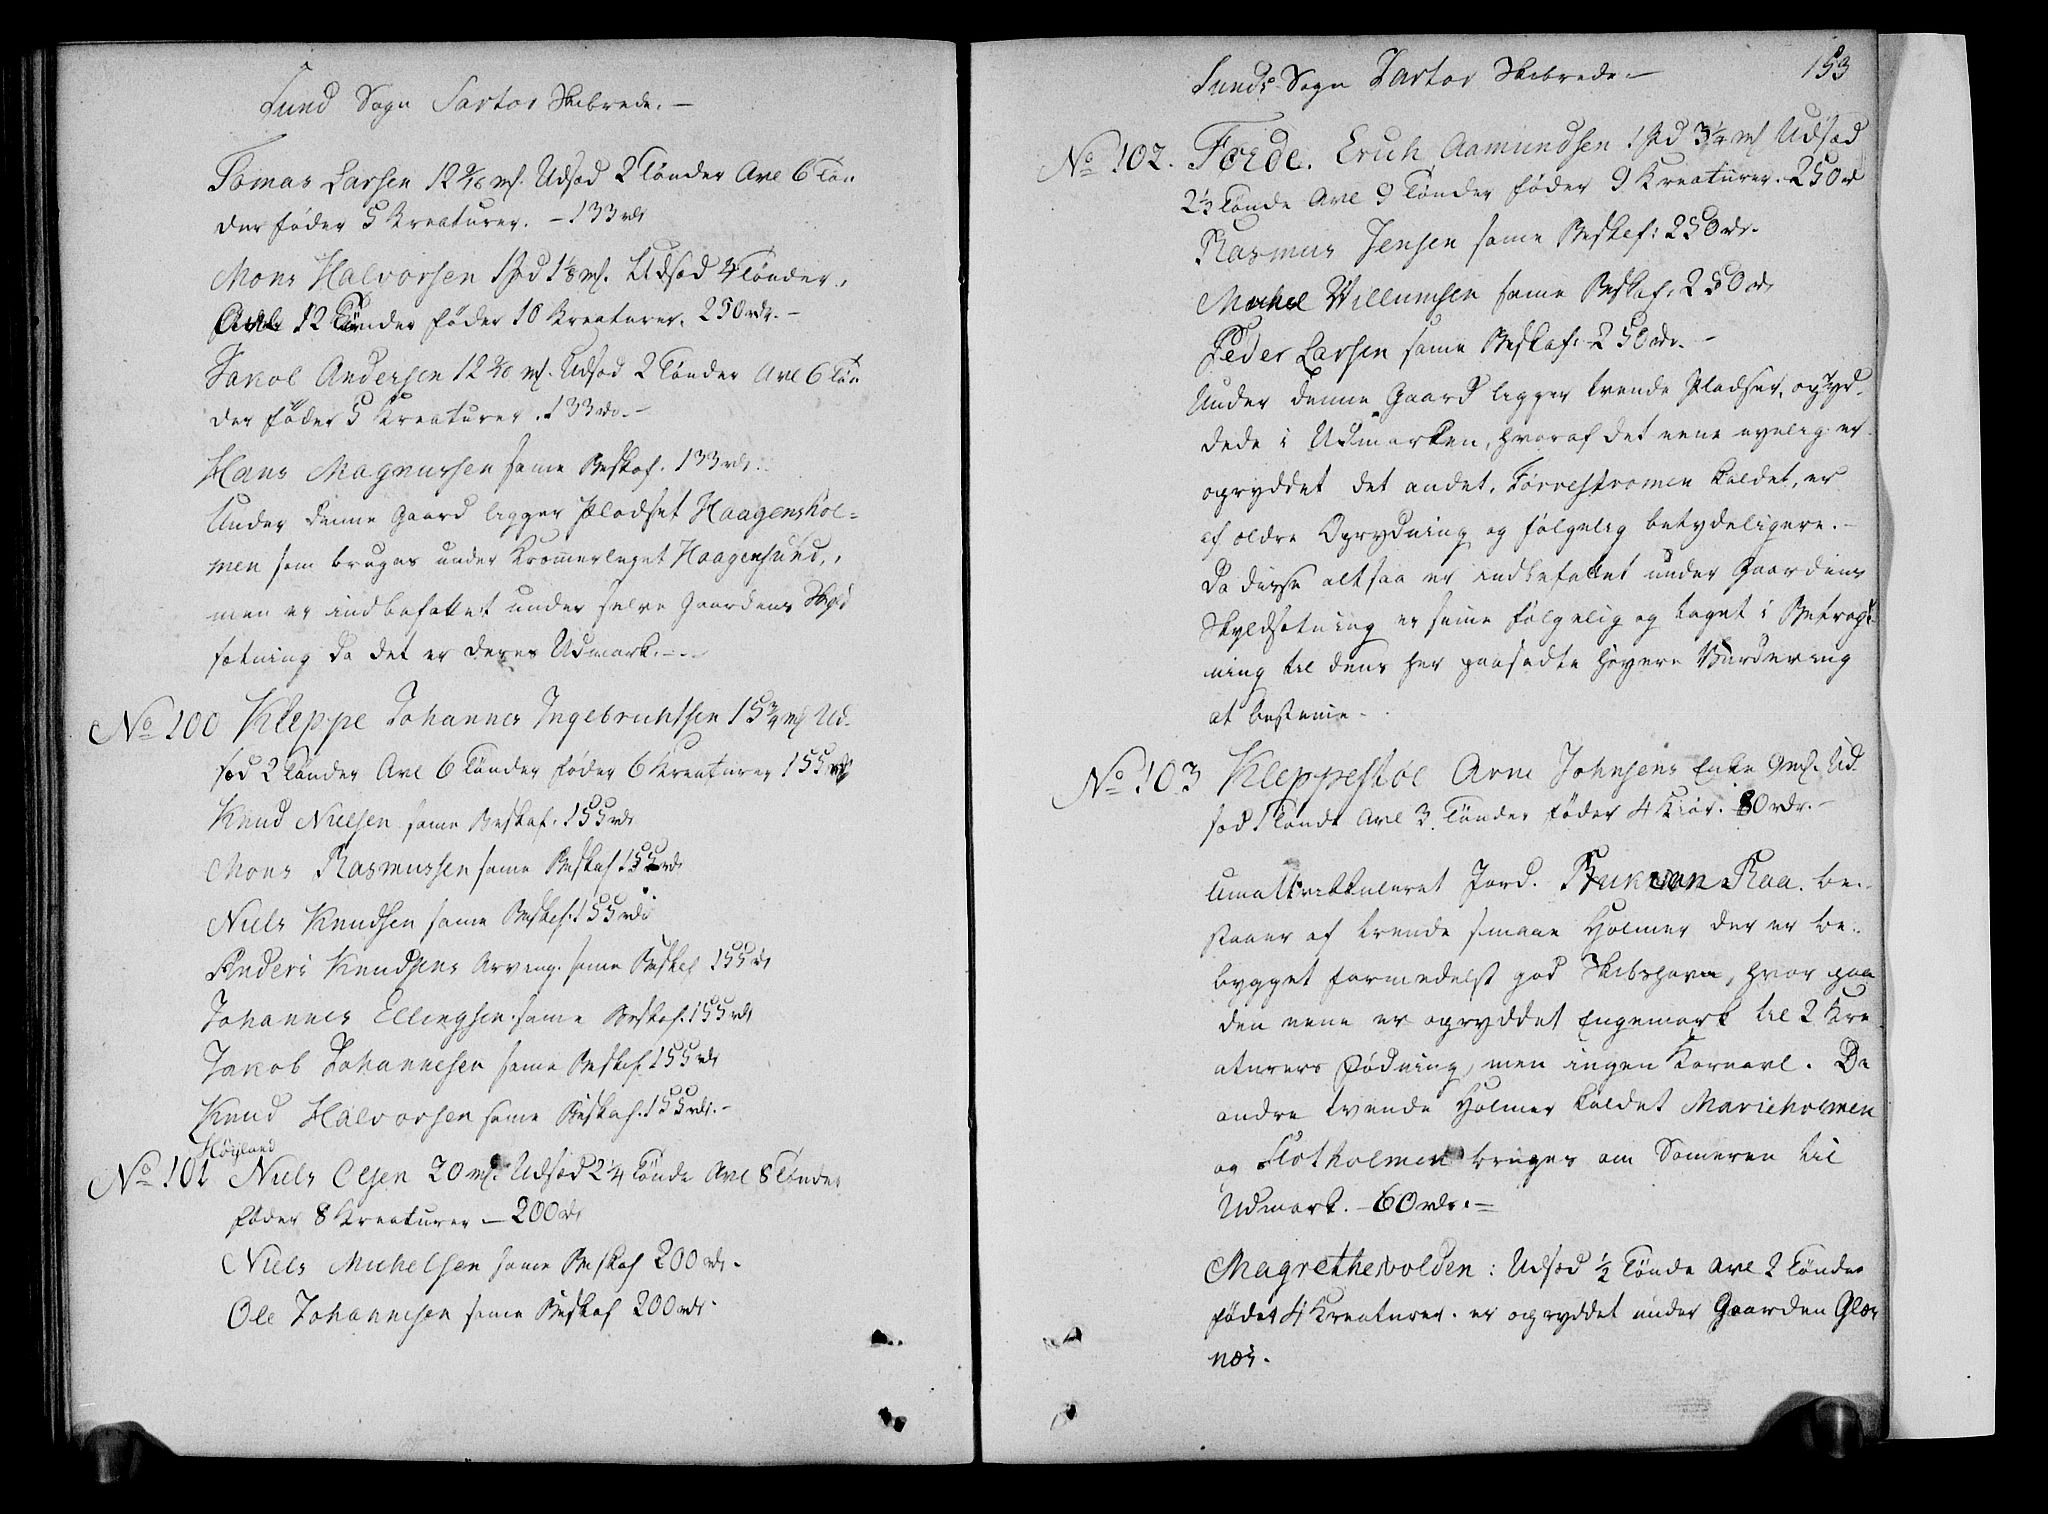 Sund Sogn Sartor Skibrede. —
Tomas Larsen 12 9/16 mk. Udsæd 2 Tönder Avl 6 Tön
der föder 5 Kreaturer. — 133 rdr
Mons Halvorsen 1 Spd 1 1/8 mk. Udsæd 4 Tönder,
Avl 12 Tönder föder 10 Kreaturer. 250 rdr. —
Jakob Andersen 12 9/16 mk. Udsæd 2 Tönder Avl 6 Tön
der föder 5 Kreaturer. 133 rdr. —
Hans Magnussen same Beskaf. 133 rdr.
Under denne Gaard ligger Pladset Haagenshol=
men som bruges under Kromerleyet Haagensund,
men er indbefattet under selve Gaardens Skyld
sætning da det er deres Udmark. —
No 100 Kleppe Johannes Ingebrichtsen 15 3/4 mk Ud-
sæd 2 Tönder Avl 6 Tönder föder 6 Kreaturer 155 rdr
Knud Nielsen same Beskaf. 155 rdr
Mons Rasmussen same Beskaf 155 rdr
Niels Knudsen same Beskaf. 155 rdr
Anders Knudsens Arving. same Beskaf 155 rdr
Johannes Ellingsen same Beskaf. 155 rdr
Jakob Johannesen same Beskaf 155 rdr
Knud Halvorsen same Beskaf. 155 rdr. —
Höyland
No 101 Niels Olsen 20 mk. Udsæd 2 1/4 Tönde Avl 8 Tönder
föder 8 Kreaturer — 200 rdr
Niels Michelsen same Beskaf 200 rdr.
Ole Johannesen same Beskaf 200 rdr.
Sunds Sogn Sartor Skibrede. — 153
No 102. Förde. Erich Aamundsen 1 Spd 3 1/4 mk Udsæd
2 1/3 Tönde Avl 9 Tönder föder 9 Kreaturer. 250 rd
Rasmus Jensen same Beskaf: 250 rdr.
Michel Willumsen same Beskaf. 250 rdr
Peder Larsen same Beskaf: 250 rdr. —
Under denne Gaard ligger tvende Pladser, opryd-
dede i Udmarken, hvoraf det eene nylig er
opryddet det andet, Førrestrømen kaldet, er
af ældre Oprydning og følgelig betydeligere. —
Da disse altsaa er indbefattet under Gaardens
Skyldsætning er samme følgelig og taget i Betragt-
ning til dens her paasadte höyere Vurdering
at bestemme.
No 103 Kleppestøe Arne Johnsens Enke 9 mk. Ud
sæd 1 Tönde Avl 3 Tönder föder 4 Kiör. 80 rdr. —
Umattrikkuleret Jord. Bukken Raa. be-
staaer af trende smaae Holmer der er be-
bygget formedelst god Skibshavn, hvor paa
den eene er opryddet Engemark til 2 Kre
aturers Födning, men ingen Kornavl. De
andre tvende Holmer kaldet Marieholmen
og Flotholmen bruges om Someren til
Udmark. — 60 rdr. =
Magrethevolden: Udsæd 1/2 Tönde Avl 2 Tönder
föder 4 Kreaturer. er opryddet under Gaarden Glæs
næs.